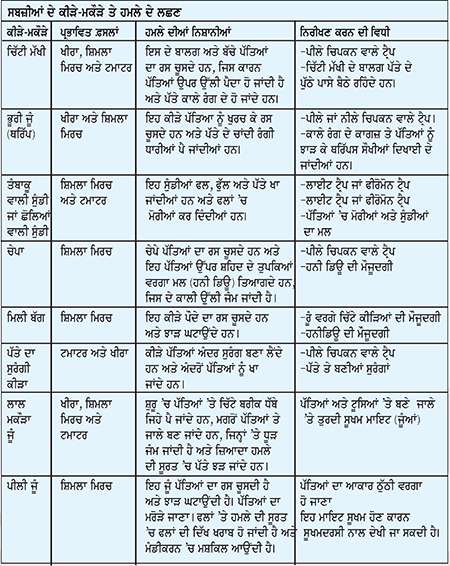 ਸਬਜ਼ੀਆਂ ਦੇ ਕੀੜੇ-ਮਕੌੜੇ ਤੇ ਹਮਲੇ ਦੇ ਲਛਣ
ਕੀੜੇ-ਮਕੌੜੇ ਪ੍ਰਭਾਵਿਤ ਫ਼ਸਲਾਂ ਹਮਲੇ ਦੀਆਂ ਨਿਸ਼ਾਨੀਆਂ ਨਿਰੀਖਣ ਕਰਨ ਦੀ ਵਿਧੀ
ਚਿੱਟੀ ਮੱਖੀ
ਖੀਰਾ, ਸ਼ਿਮਲਾ
ਮਿਰਚ ਅਤੇ ਟਮਾਟਰ
ਇਸ ਦੇ ਬਾਲਗ ਅਤੇ ਬੱਚੇ ਪੱਤਿਆਂ
ਦਾ ਰਸ ਚੂਸਦੇ ਹਨ, ਜਿਸ ਕਾਰਨ
ਪੱਤਿਆਂ ਉਪਰ ਉੱਲੀ ਪੈਦਾ ਹੋ ਜਾਂਦੀ ਹੈ
ਅਤੇ ਪੱਤੇ ਕਾਲੇ ਰੰਗ ਦੇ ਹੋ ਜਾਂਦੇ ਹਨ।
-ਪੀਲੇ ਚਿਪਕਨ ਵਾਲੇ ਟ੍ਰੈਪ
-ਚਿੱਟੀ ਮੱਖੀ ਦੇ ਬਾਲਗ ਪੱਤੇ ਦੇ
ਪੁੱਠੇ ਪਾਸੇ ਬੈਠੇ ਰਹਿੰਦੇ ਹਨ।
ਭੂਰੀ ਜੂੰ
(ਥਰਿੱਪ)
ਖੀਰਾ ਅਤੇ ਸ਼ਿਮਲਾ
ਮਿਰਚ
ਇਹ ਕੀੜੇ ਪੱਤਿਆ ਨੂੰ ਖੁਰਚ ਕੇ ਰਸ
ਚੂਸਦੇ ਹਨ ਅਤੇ ਪੱਤੇ ਦੇ ਚਾਂਦੀ ਰੰਗੀ
ਧਾਰੀਆਂ ਪੈ ਜਾਂਦੀਆਂ ਹਨ।
-ਪੀਲੇ ਜਾਂ ਨੀਲੇ ਚਿਪਕਨ ਵਾਲੇ ਟ੍ਰੈਪ।
-ਕਾਲੇ ਰੰਗ ਦੇ ਕਾਗਜ਼ ਤੇ ਪੱਤਿਆਂ ਨੂੰ
ਝਾੜ ਕੇ ਥਰਿੱਪਸ ਸੌਖੀਆਂ ਦਿਖਾਈ ਦੇ
ਜਾਂਦੀਆਂ ਹਨ।
ਤੰਬਾਕੂ
ਵਾਲੀ ਸੁੰਡੀ
ਜਾਂ ਛੋਲਿਆਂ
ਵਾਲੀ ਸੁੰਡੀ
ਸ਼ਿਮਲਾ ਮਿਰਚ
ਅਤੇ ਟਮਾਟਰ
ਇਹ ਸੁੰਡੀਆਂ ਫਲ, ਫੁੱਲ ਅਤੇ ਪੱਤੇ ਖਾ
ਜਾਂਦੀਆਂ ਹਨ ਅਤੇ ਫਲਾਂ 'ਚ
ਮੋਰੀਆਂ ਕਰ ਦਿੰਦੀਆਂ ਹਨ।
-ਲਾਈਟ ਟ੍ਰੈਪ ਜਾਂ ਫੀਰੋਮੋਨ ਟ੍ਰੈਪ
-ਲਾਈਟ ਟ੍ਰੈਪ ਜਾਂ ਫੀਰੋਮੋਨ ਟ੍ਰੈਪ
-ਪੱਤਿਆਂ 'ਚ ਮੋਰੀਆਂ ਅਤੇ ਸੁੰਡੀਆਂ
ਦਾ ਮਲ
ਚੇਪਾ
ਸ਼ਿਮਲਾ ਮਿਰਚ
ਚੇਪੇ ਪੱਤਿਆਂ ਦਾ ਰਸ ਚੂਸਦੇ ਹਨ ਅਤੇ
ਇਹ ਪੱਤਿਆਂ ਉੱਪਰ ਸ਼ਹਿਦ ਦੇ ਤੁਪਕਿਆਂ
ਵਰਗਾ ਮਲ (ਹਨੀ ਡਿਊ) ਤਿਆਗਦੇ ਹਨ,
ਜਿਸ ਦੇ ਕਾਲੀ ਉੱਲੀ ਜੰਮ ਜਾਂਦੀ ਹੈ।
-ਪੀਲੇ ਚਿਪਕਨ ਵਾਲੇ ਟ੍ਰੈਪ
-ਹਨੀ ਡਿਊ ਦੀ ਮੌਜੂਦਗੀ
ਮਿਲੀ ਬੱਗ
ਸ਼ਿਮਲਾ ਮਿਰਚ
ਇਹ ਕੀੜੇ ਪੌਦੇ ਦਾ ਰਸ ਚੂਸਦੇ ਹਨ
ਅਤੇ ਝਾੜ ਘਟਾਉਂਦੇ ਹਨ।
-ਰੂੰ ਵਰਗੇ ਚਿੱਟੇ ਕੀੜਿਆਂ ਦੀ ਮੌਜੂਦਗੀ
-ਹਨੀਡਿਊ ਦੀ ਮੌਜੂਦਗੀ
ਪੱਤੇ ਦਾ
ਸੁਰੰਗੀ
ਕੀੜਾ
ਟਮਾਟਰ ਅਤੇ ਖੀਰਾ
ਕੀੜੇ ਪੱਤਿਆਂ ਅੰਦਰ ਸੁਰੰਗ ਬਣਾ ਲੈਂਦੇ
ਹਨ ਅਤੇ ਅੰਦਰੋਂ ਪੱਤਿਆਂ ਨੂੰ ਖਾ
ਜਾਂਦੇ ਹਨ।
-ਪੀਲੇ ਚਿਪਕਨ ਵਾਲੇ ਟ੍ਰੈਪ
-ਪੱਤੇ ਤੇ ਬਣੀਆਂ ਸੁਰੰਗਾਂ
ਲਾਲ
ਮਕੌੜਾ
ਜੂੰ
ਖੀਰਾ, ਸ਼ਿਮਲਾ
ਮਿਰਚ ਅਤੇ
ਟਮਾਟਰ
ਸ਼ੁਰੂ 'ਚ ਪੱਤਿਆਂ ਤੇ ਚਿੱਟੇ ਬਰੀਕ ਧੱਬੇ
ਜਿਹੇ ਪੈ ਜਾਂਦੇ ਹਨ, ਮਗਰੋਂ ਪੱਤਿਆਂ ਤੇ
ਜਾਲੇ ਬਣ ਜਾਂਦੇ ਹਨ, ਜਿਨ੍ਹਾਂ 'ਤੇ ਧੂੜ
ਜੰਮ ਜਾਂਦੀ ਹੈ ਅਤੇ ਜ਼ਿਆਦਾ ਹਮਲੇ
ਦੀ ਸੂਰਤ 'ਚ ਪੱਤੇ ਝੜ ਜਾਂਦੇ ਹਨ।
ਪੱਤਿਆਂ ਅਤੇ ਟੂਸਿਆਂ 'ਤੇ ਬਣੇ ਜਾਲੇ
'ਤੇ ਤੁਰਦੀ ਸੂਖਮ ਮਾਇਟ (ਜੂੰਆਂ)
ਪੀਲੀ ਜੂੰ
ਸ਼ਿਮਲਾ ਮਿਰਚ
ਇਹ ਜੂੰ ਪੱਤਿਆਂ ਦਾ ਰਸ ਚੂਸਦੀ ਹੈ
ਅਤੇ ਝਾੜ ਘਟਾਉਂਦੀ ਹੈ। ਪੱਤਿਆਂ ਦਾ
ਮਰੋੜੇ ਜਾਣਾ। ਫਲਾਂ 'ਤੇ ਹਮਲੇ ਦੀ ਸੂਰਤ
'ਚ ਫਲਾਂ ਦੀ ਦਿੱਖ ਖਰਾਬ ਹੋ ਜਾਂਦੀ ਹੈ ਅਤੇ
ਮੰਡੀਕਰਨ 'ਚ ਮਸ਼ਕਿਲ ਆਉਂਦੀ ਹੈ।
ਪੱਤਿਆਂ ਦਾ ਆਕਾਰ ਠੂੱਠੀ ਵਰਗਾ
ਹੋ ਜਾਣਾ
ਇਹ ਮਾਇਟ ਸੂਖਮ ਹੋਣ ਕਾਰਨ
ਸੂਖਮਦਰਸੀ ਨਾਲ ਦੇਖੀ ਜਾ ਸਕਦੀ ਹੈ।